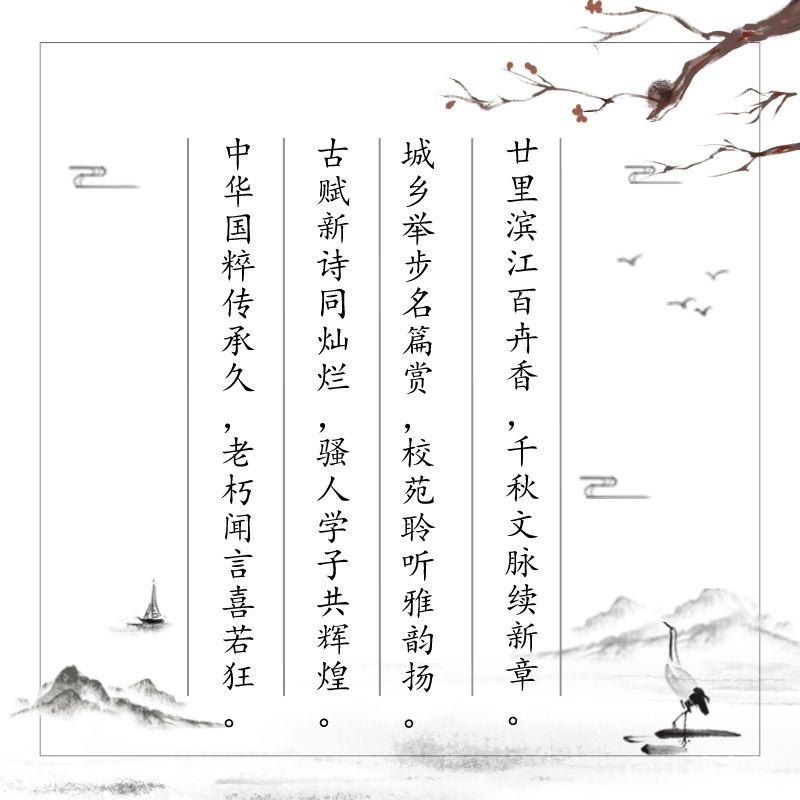 廿里滨江百卉香,千秋文脉续新章。
城乡举步名篇赏,校苑聆听雅韵扬。
古赋新诗同灿烂,骚人学子共辉煌。
中华国粹传承久,老朽闻言喜若狂。